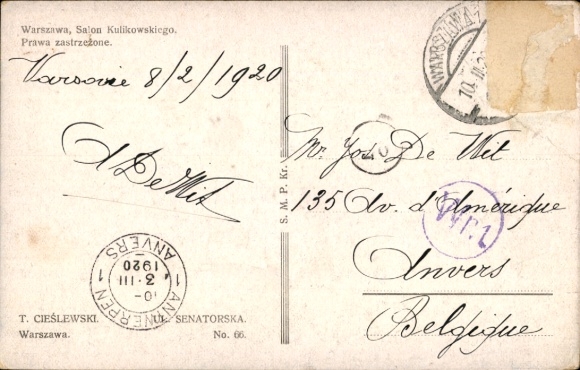 Warszawa, Salon Kulikowskiego.
Prawa zastrzeżone.
Varsovie 8/2/1920
A De Wit
S. M. P. Kr.
WARSZAWA
10. II. 20
Mr Jos. De Wit
135 Av. d'Amérique
Anvers
Belgique
W.1
1 ANTWERPEN 1
ANVERS
10-
3·III
1920
T. CIEŚLEWSKI. UL. SENATORSKA.
Warszawa. No. 66.